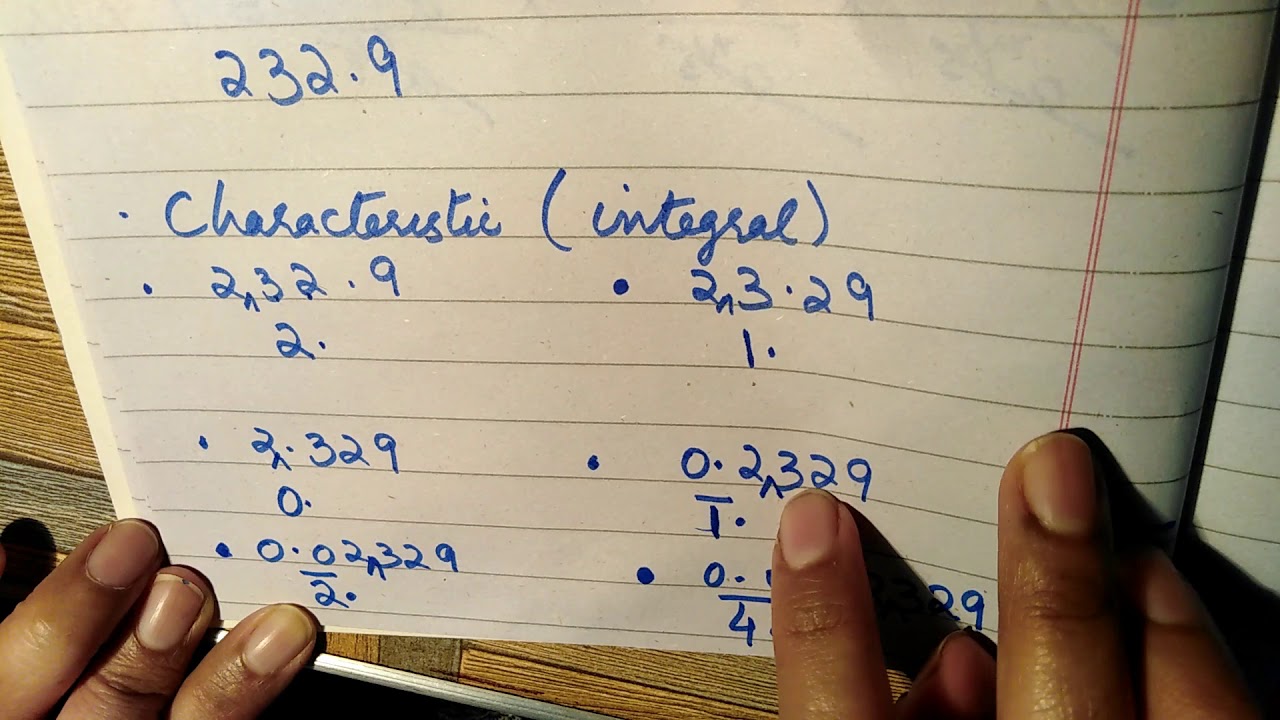 232.9
• Characteristic (integral)
• 2‸32.9 • 2‸3.29
2. 1.
• 2‸.329 • 0.2‸329
0. 1̅.
• 0.02‸329 • 0. 329
2̅. 4̅